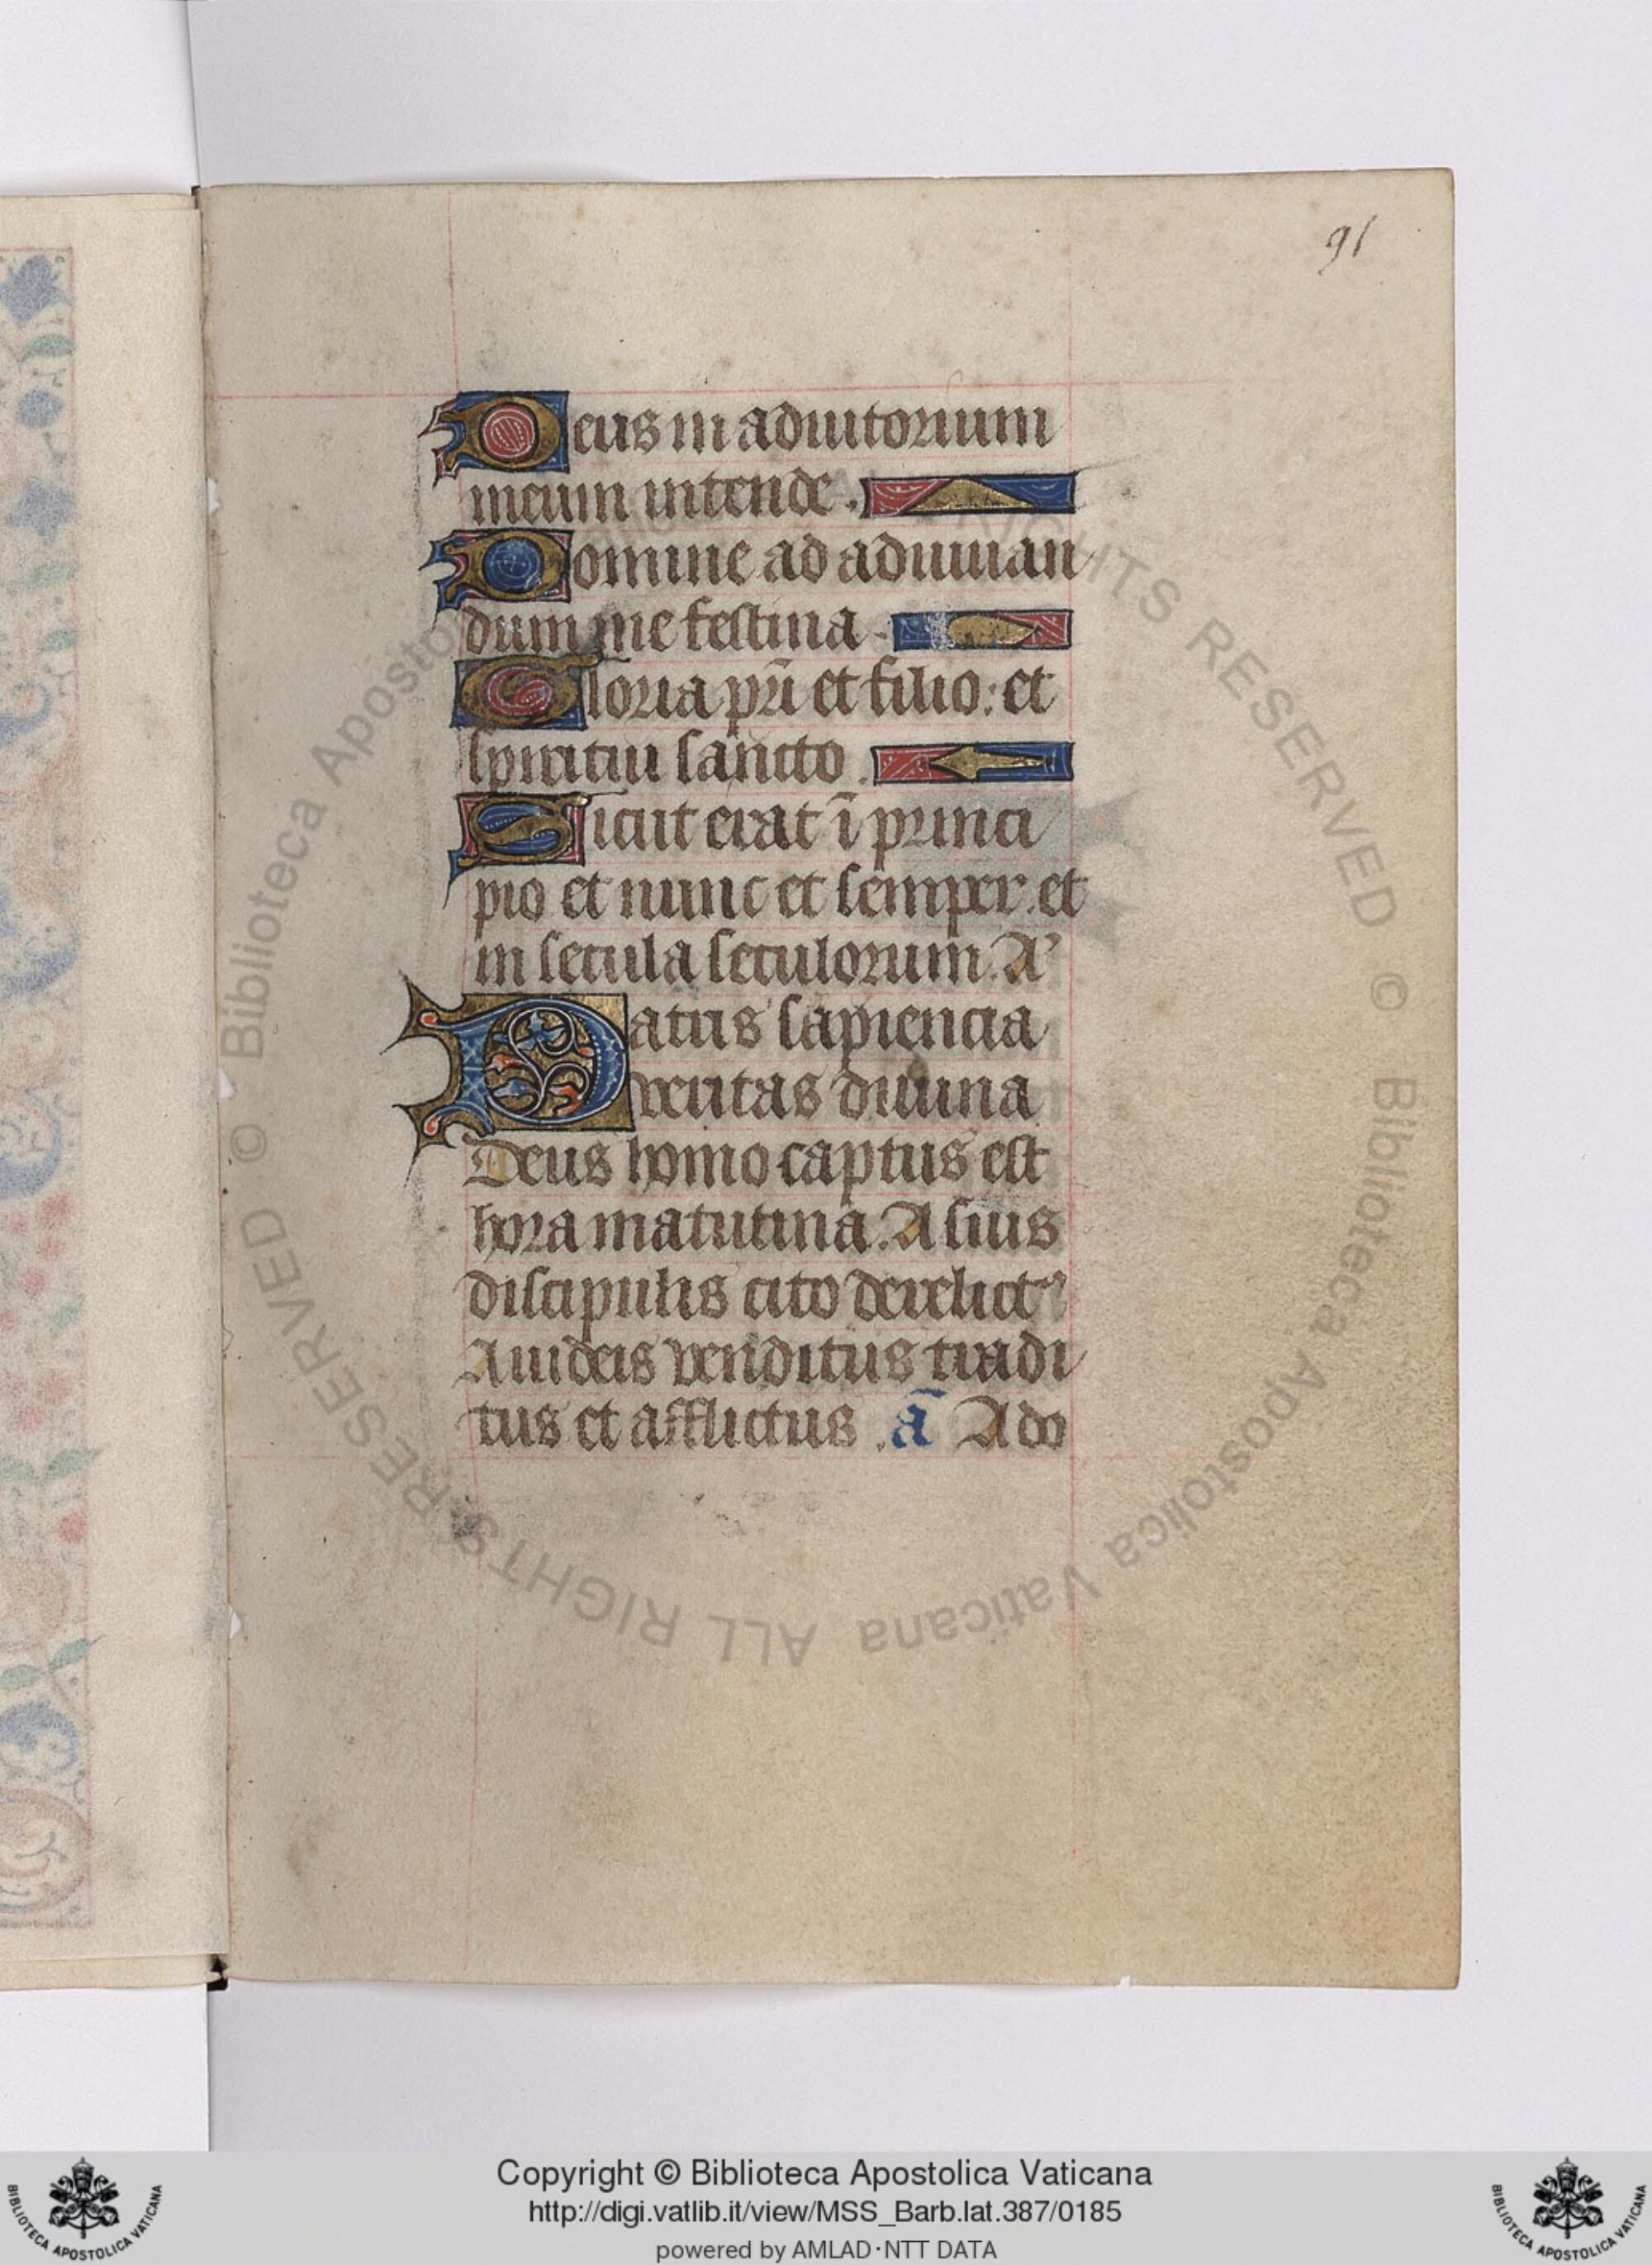 91
Deus in adiutorium
meum intende.
Domine ad adiuuan
dum me festina.
Gloria pr̄i et filio: et
spiritui sancto.
Sicut erat ī princi
pio et nunc et semper. et
in secula seculorum. A'
Patris sapiencia
veritas diuina
Deus homo captus est
hora matutina. A suis
discipulis cito derelict᾿
A iudeis venditus tradi
tus et afflictus. ā Ado
© Biblioteca Apostolica Vaticana ALL RIGHTS RESERVED
© Biblioteca Apostolica Vaticana ALL RIGHTS RESERVED
Copyright © Biblioteca Apostolica Vaticana
http://digi.vatlib.it/view/MSS_Barb.lat.387/0185
powered by AMLAD·NTT DATA
BIBLIOTECA APOSTOLICA VATICANA
BIBLIOTECA APOSTOLICA VATICANA